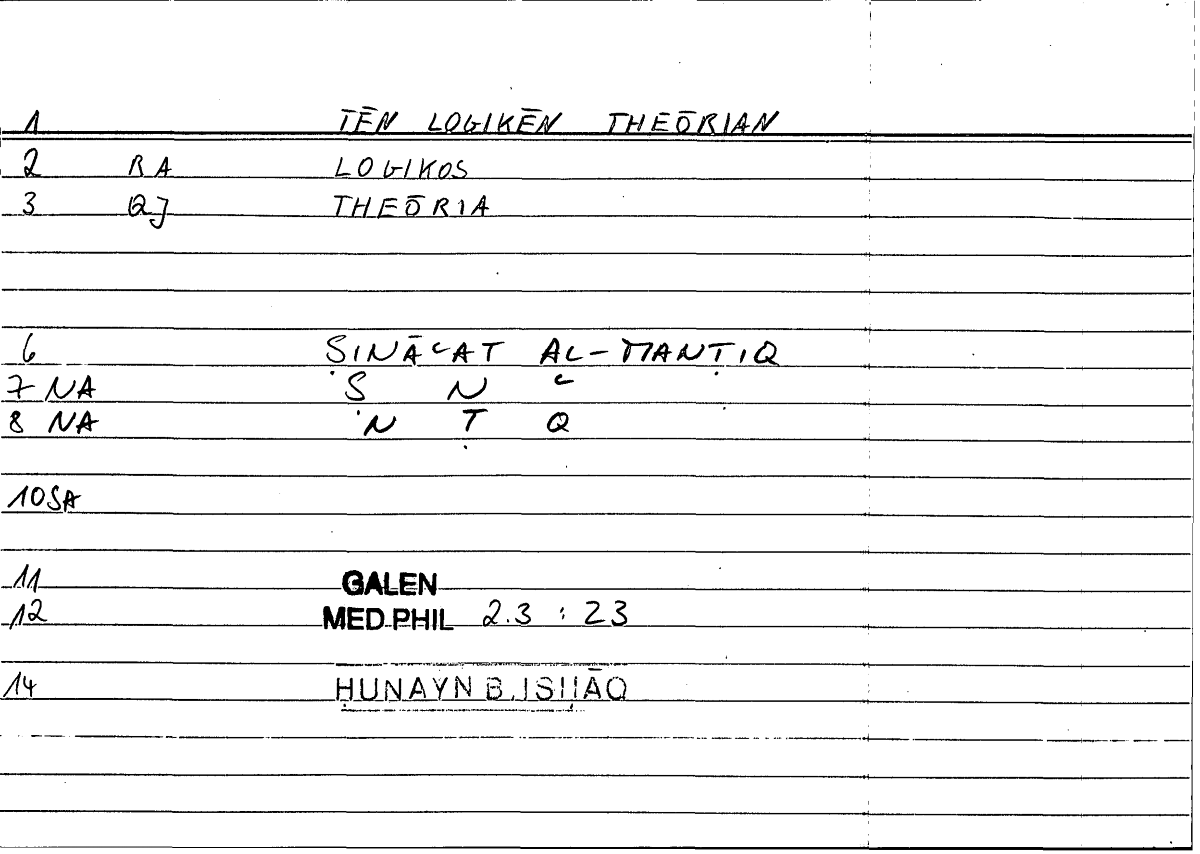 1 TĒN LOGIKĒN THEŌRIAN
2 RA LOGIKOS
3 QJ THEŌRIA
6 ṢINĀʿAT AL-MANṬIQ
7 NA Ṣ N ʿ
8 NA N Ṭ Q
10 SA
11 GALEN
12 MED.PHIL 2.3 : 23
14 ḤUNAYN B. ISḤĀQ